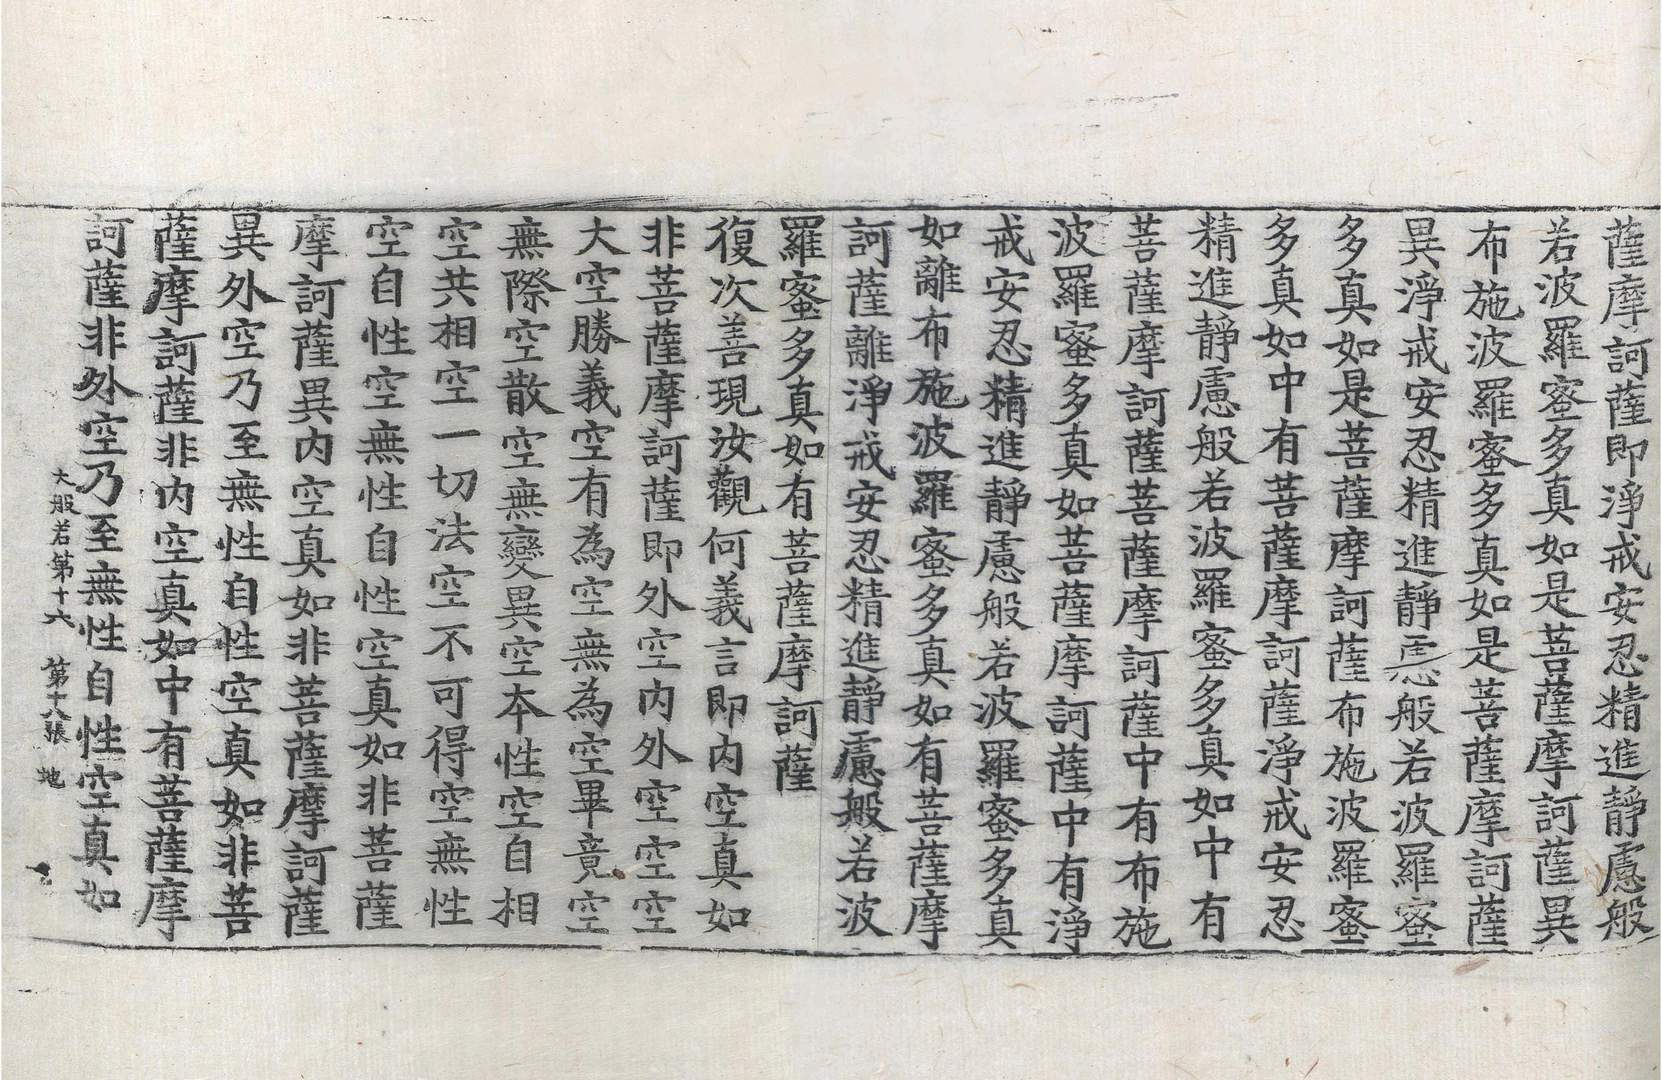 薩摩訶薩即淨戒安忍精進靜慮般
若波羅蜜多真如是菩薩摩訶薩異
布施波羅蜜多真如是菩薩摩訶薩
異淨戒安忍精進靜慮般若波羅蜜
多真如是菩薩摩訶薩布施波羅蜜
多真如中有菩薩摩訶薩淨戒安忍
精進靜慮般若波羅蜜多真如中有
菩薩摩訶薩菩薩摩訶薩中有布施
波羅蜜多真如菩薩摩訶薩中有淨
戒安忍精進靜慮般若波羅蜜多真
如離布施波羅蜜多真如有菩薩摩
訶薩離淨戒安忍精進靜慮般若波
羅蜜多真如有菩薩摩訶薩
復次善現汝觀何義言即內空真如
非菩薩摩訶薩即外空內外空空空
大空勝義空有為空無為空畢竟空
無際空散空無變異空本性空自相
空共相空一切法空不可得空無性
空自性空無性自性空真如非菩薩
摩訶薩異內空真如非菩薩摩訶薩
異外空乃至無性自性空真如非菩
薩摩訶薩非內空真如中有菩薩摩
訶薩非外空乃至無性自性空真如
大般若第十六 第十八張 地